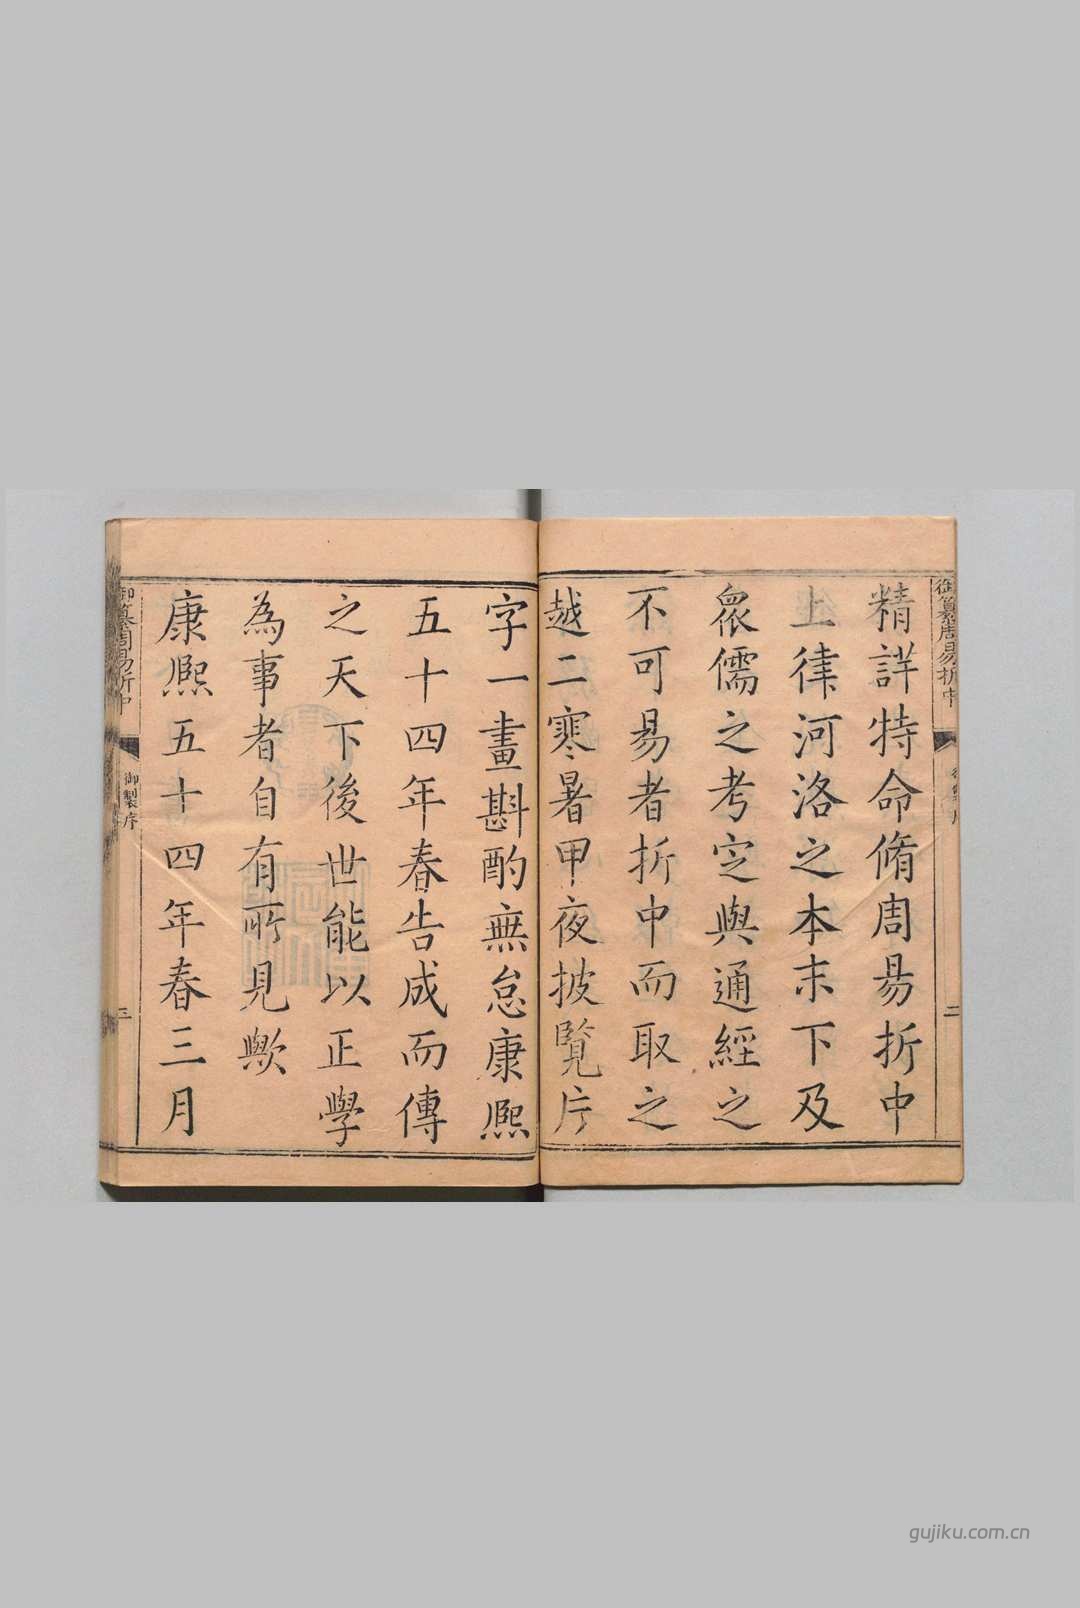 御纂周易折中
二
精詳特命脩周易折中
上律河洛之本末下及
衆儒之考定與通經之
不可易者折中而取之
越二寒暑甲夜披覽片
字一畫斟酌無怠康熙
五十四年春告成而傳
之天下後世能以正學
為事者自有所見歟
康熙五十四年春三月
御纂周易折中
御製序
三
gujiku.com.cn